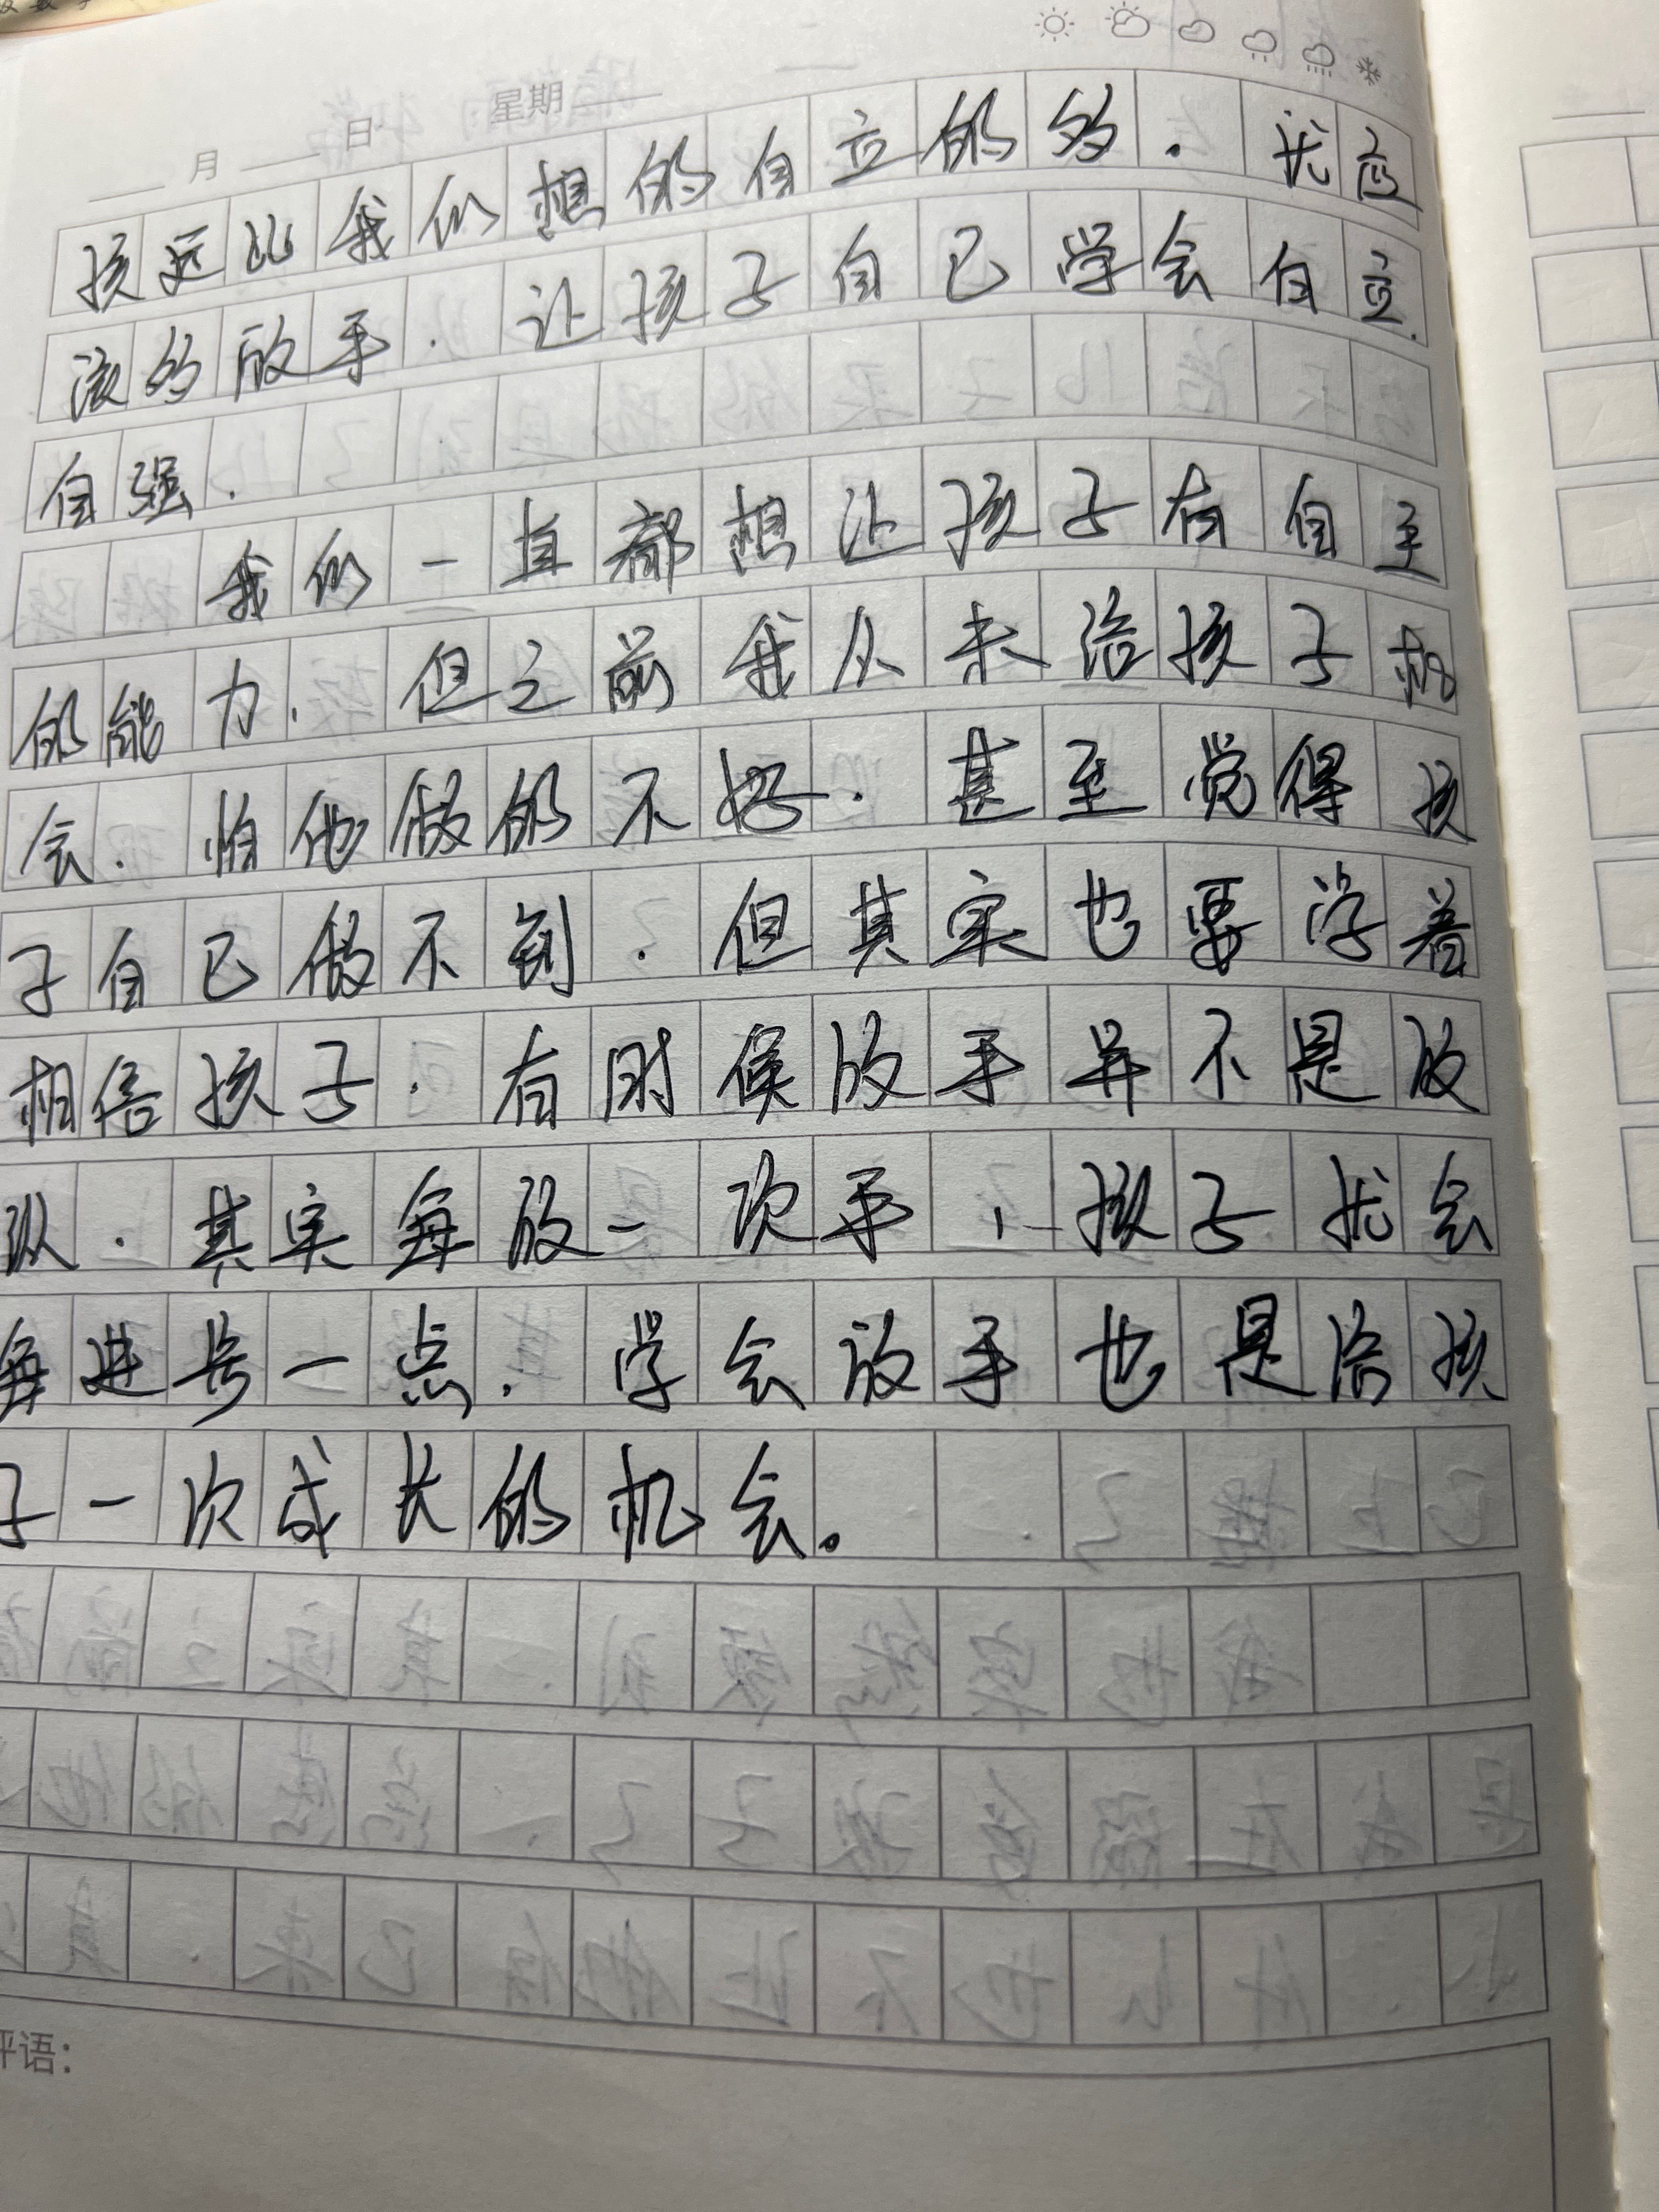 月 日 星期
孩远比我们想的自立的多.我应
该多放手.让孩子自己学会自立.
自强.
我们一直都想让孩子有自主
的能力.但之前我从未给孩子机
会.怕他做的不好.甚至觉得孩
子自己做不到.但其实也要学着
相信孩子.有时候放手并不是放
纵.其实每放一次手,孩子就会
每进步一点.学会放手也是给孩
子一次成长的机会。
评语: